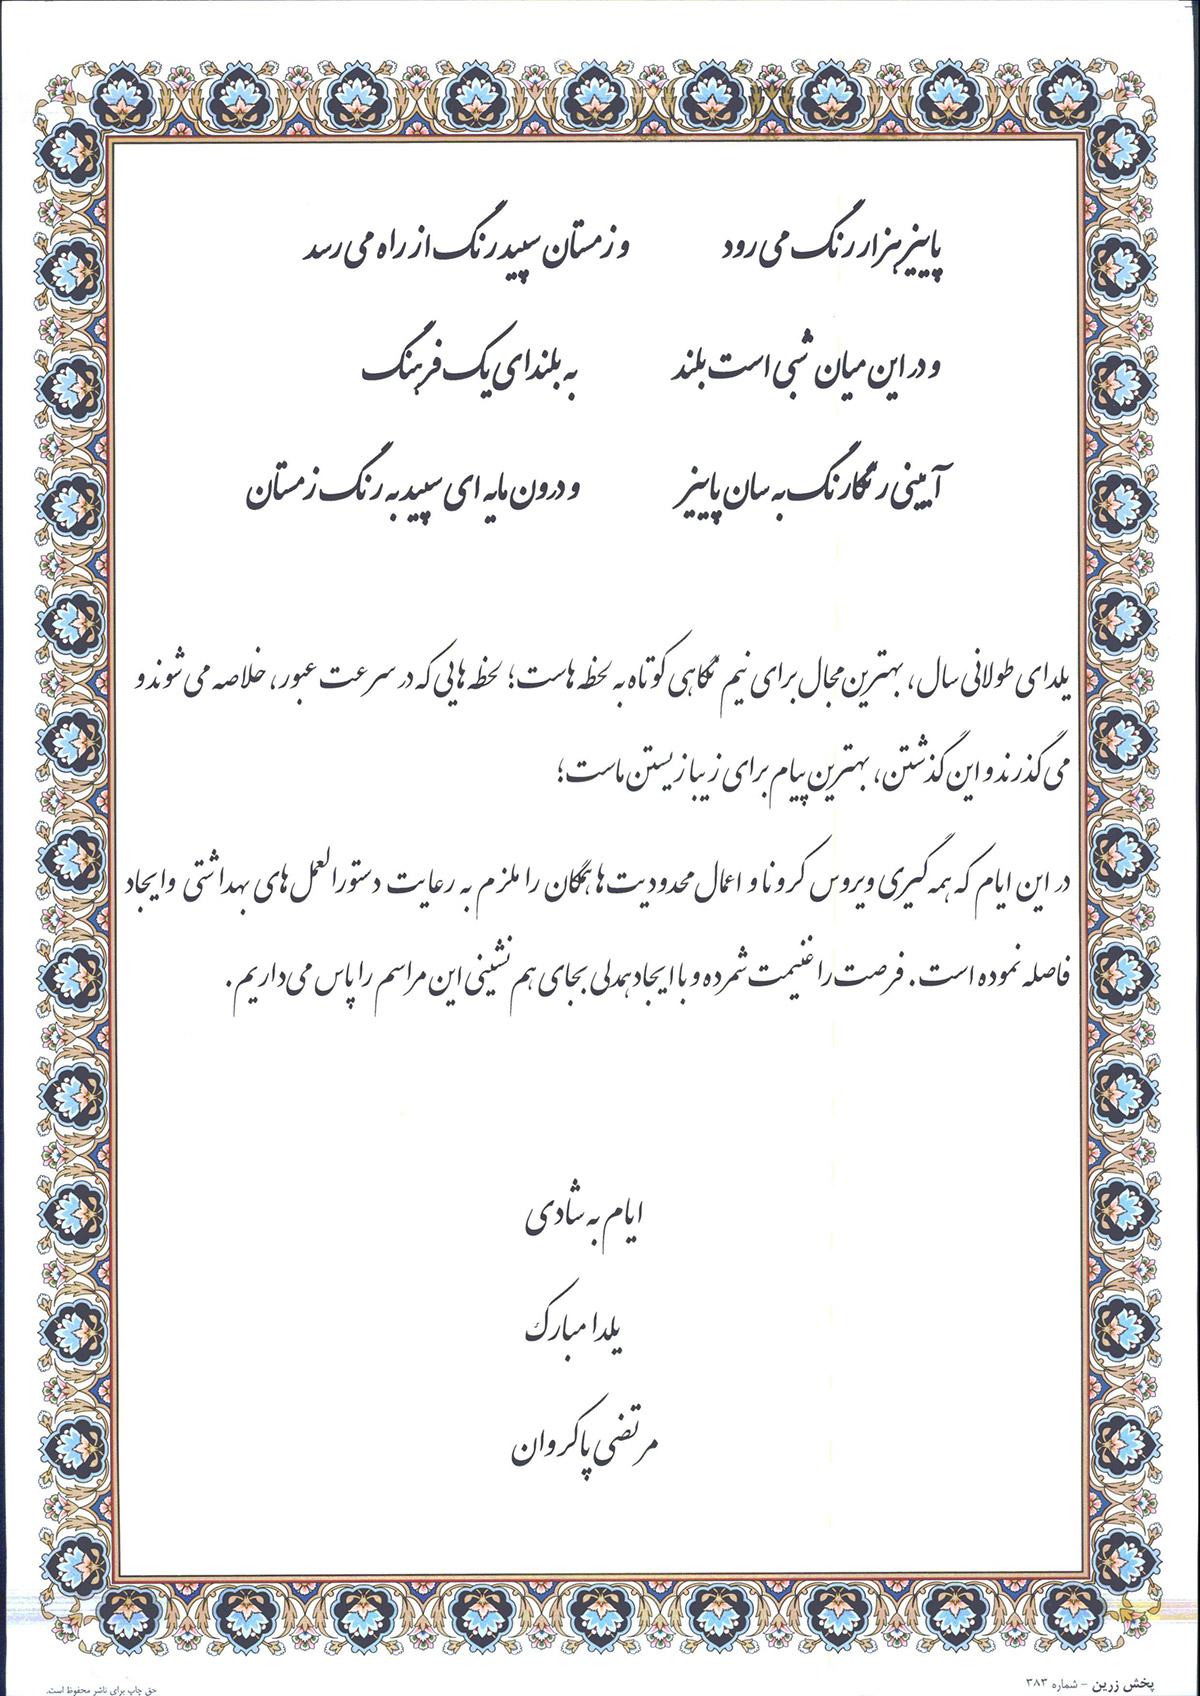 پاییز هزار رنگ می رود و زمستان سپید رنگ از راه می رسد
و در این میان شبی است بلند به بلندای یک فرهنگ
آیینی رنگارنگ به سان پاییز و درون مایه ای سپید به رنگ زمستان
یلدای طولانی سال، بهترین مجال برای نیم نگاهی کوتاه به لحظه هاست؛ لحظه هایی که در سرعت عبور، خلاصه می شوند و
می گذرند و این گذشتن، بهترین پیام برای زیبا زیستن ماست؛
در این ایام که همه گیری ویروس کرونا و اعمال محدودیت ها همگان را ملزم به رعایت دستورالعمل های بهداشتی وایجاد
فاصله نموده است. فرصت را غنیمت شمرده و با ایجاد همدلی بجای هم نشینی این مراسم را پاس می داریم.
ایام به شادی
یلدا مبارک
مرتضی پاکروان
پخش زرین - شماره ۳۸۳
حق چاپ برای ناشر محفوظ است.